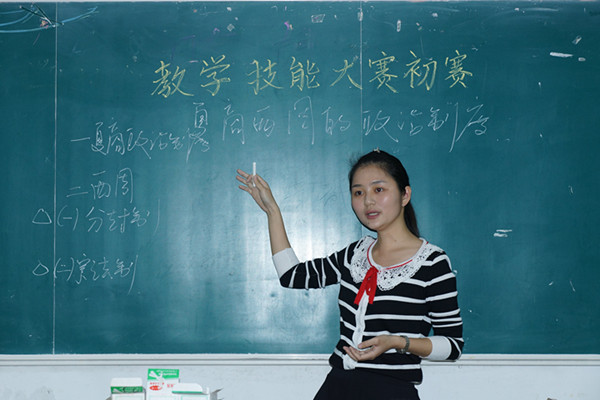 教学技能大赛初赛
夏商西周的政治制度
一夏商政治制度
二西周
△(一)分封制
△(二)宗法制